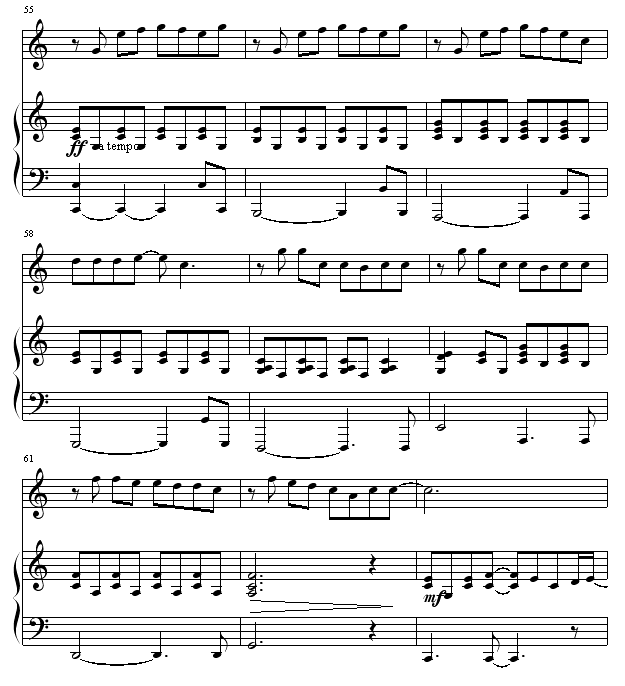 55
ff a tempo
58
61
mf